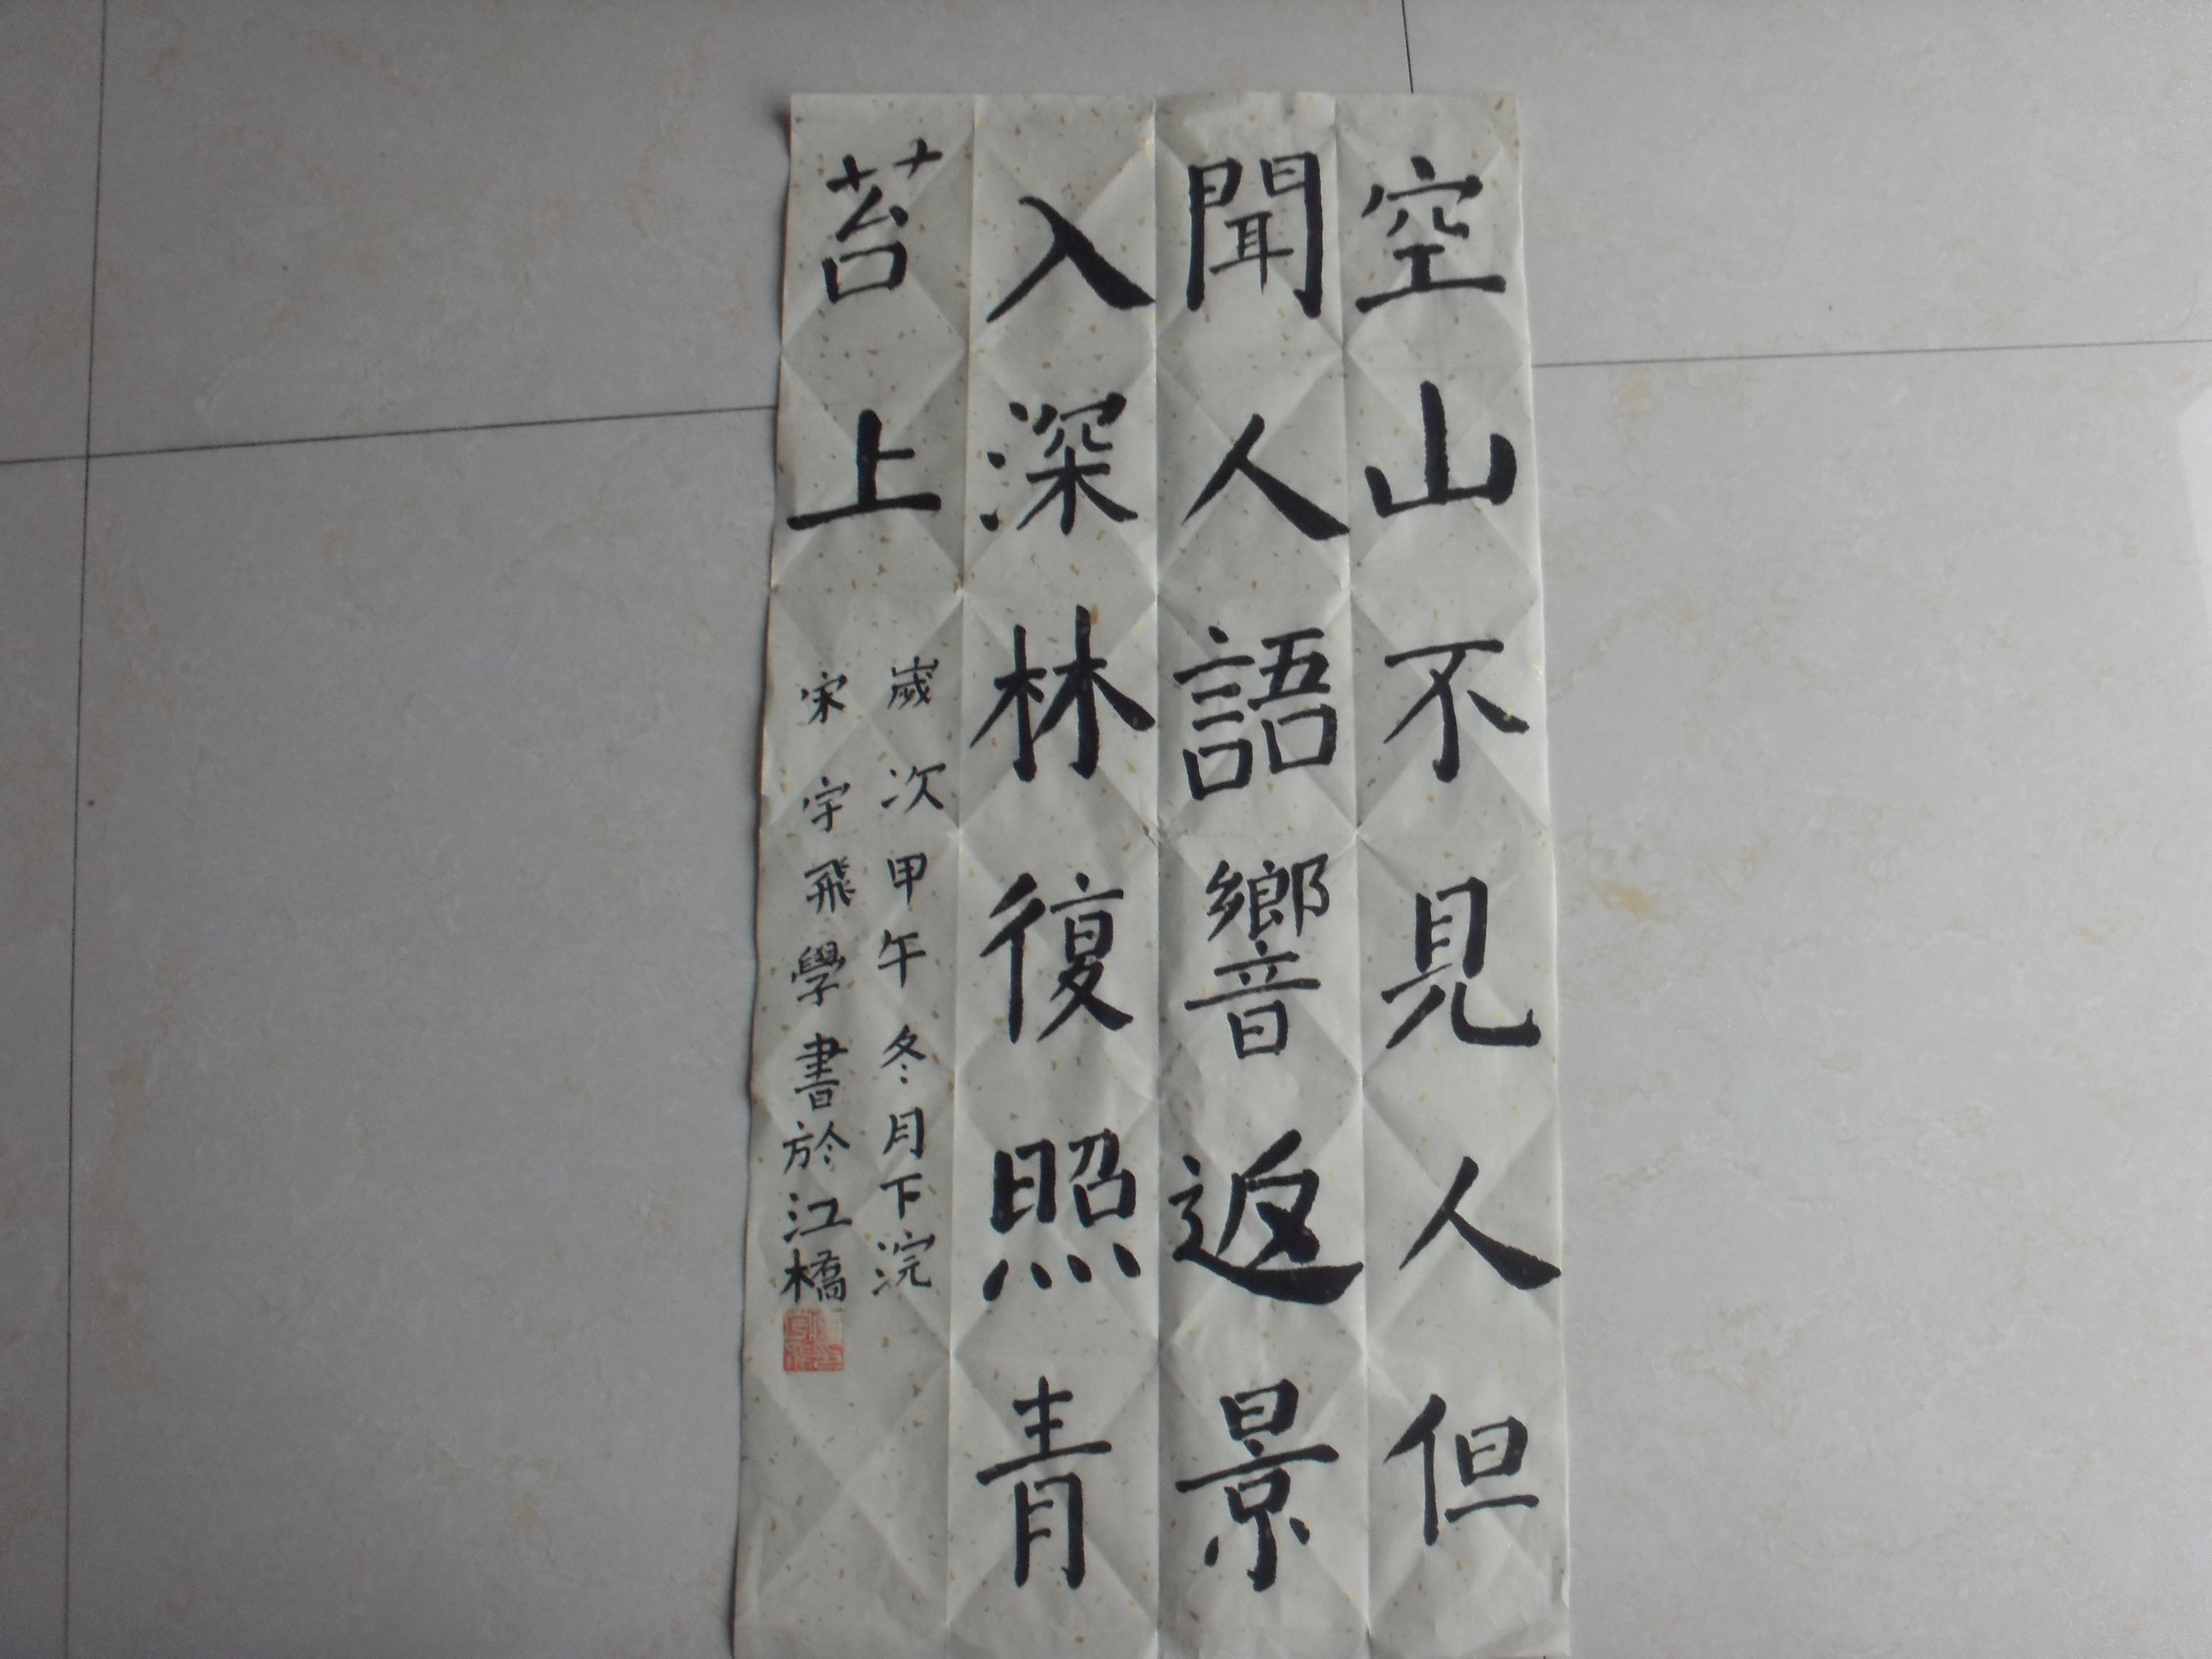 空山不見人但
聞人語響返景
入深林復照青
苔上
歲次甲午冬月下浣
宋宇飛學書於江橋